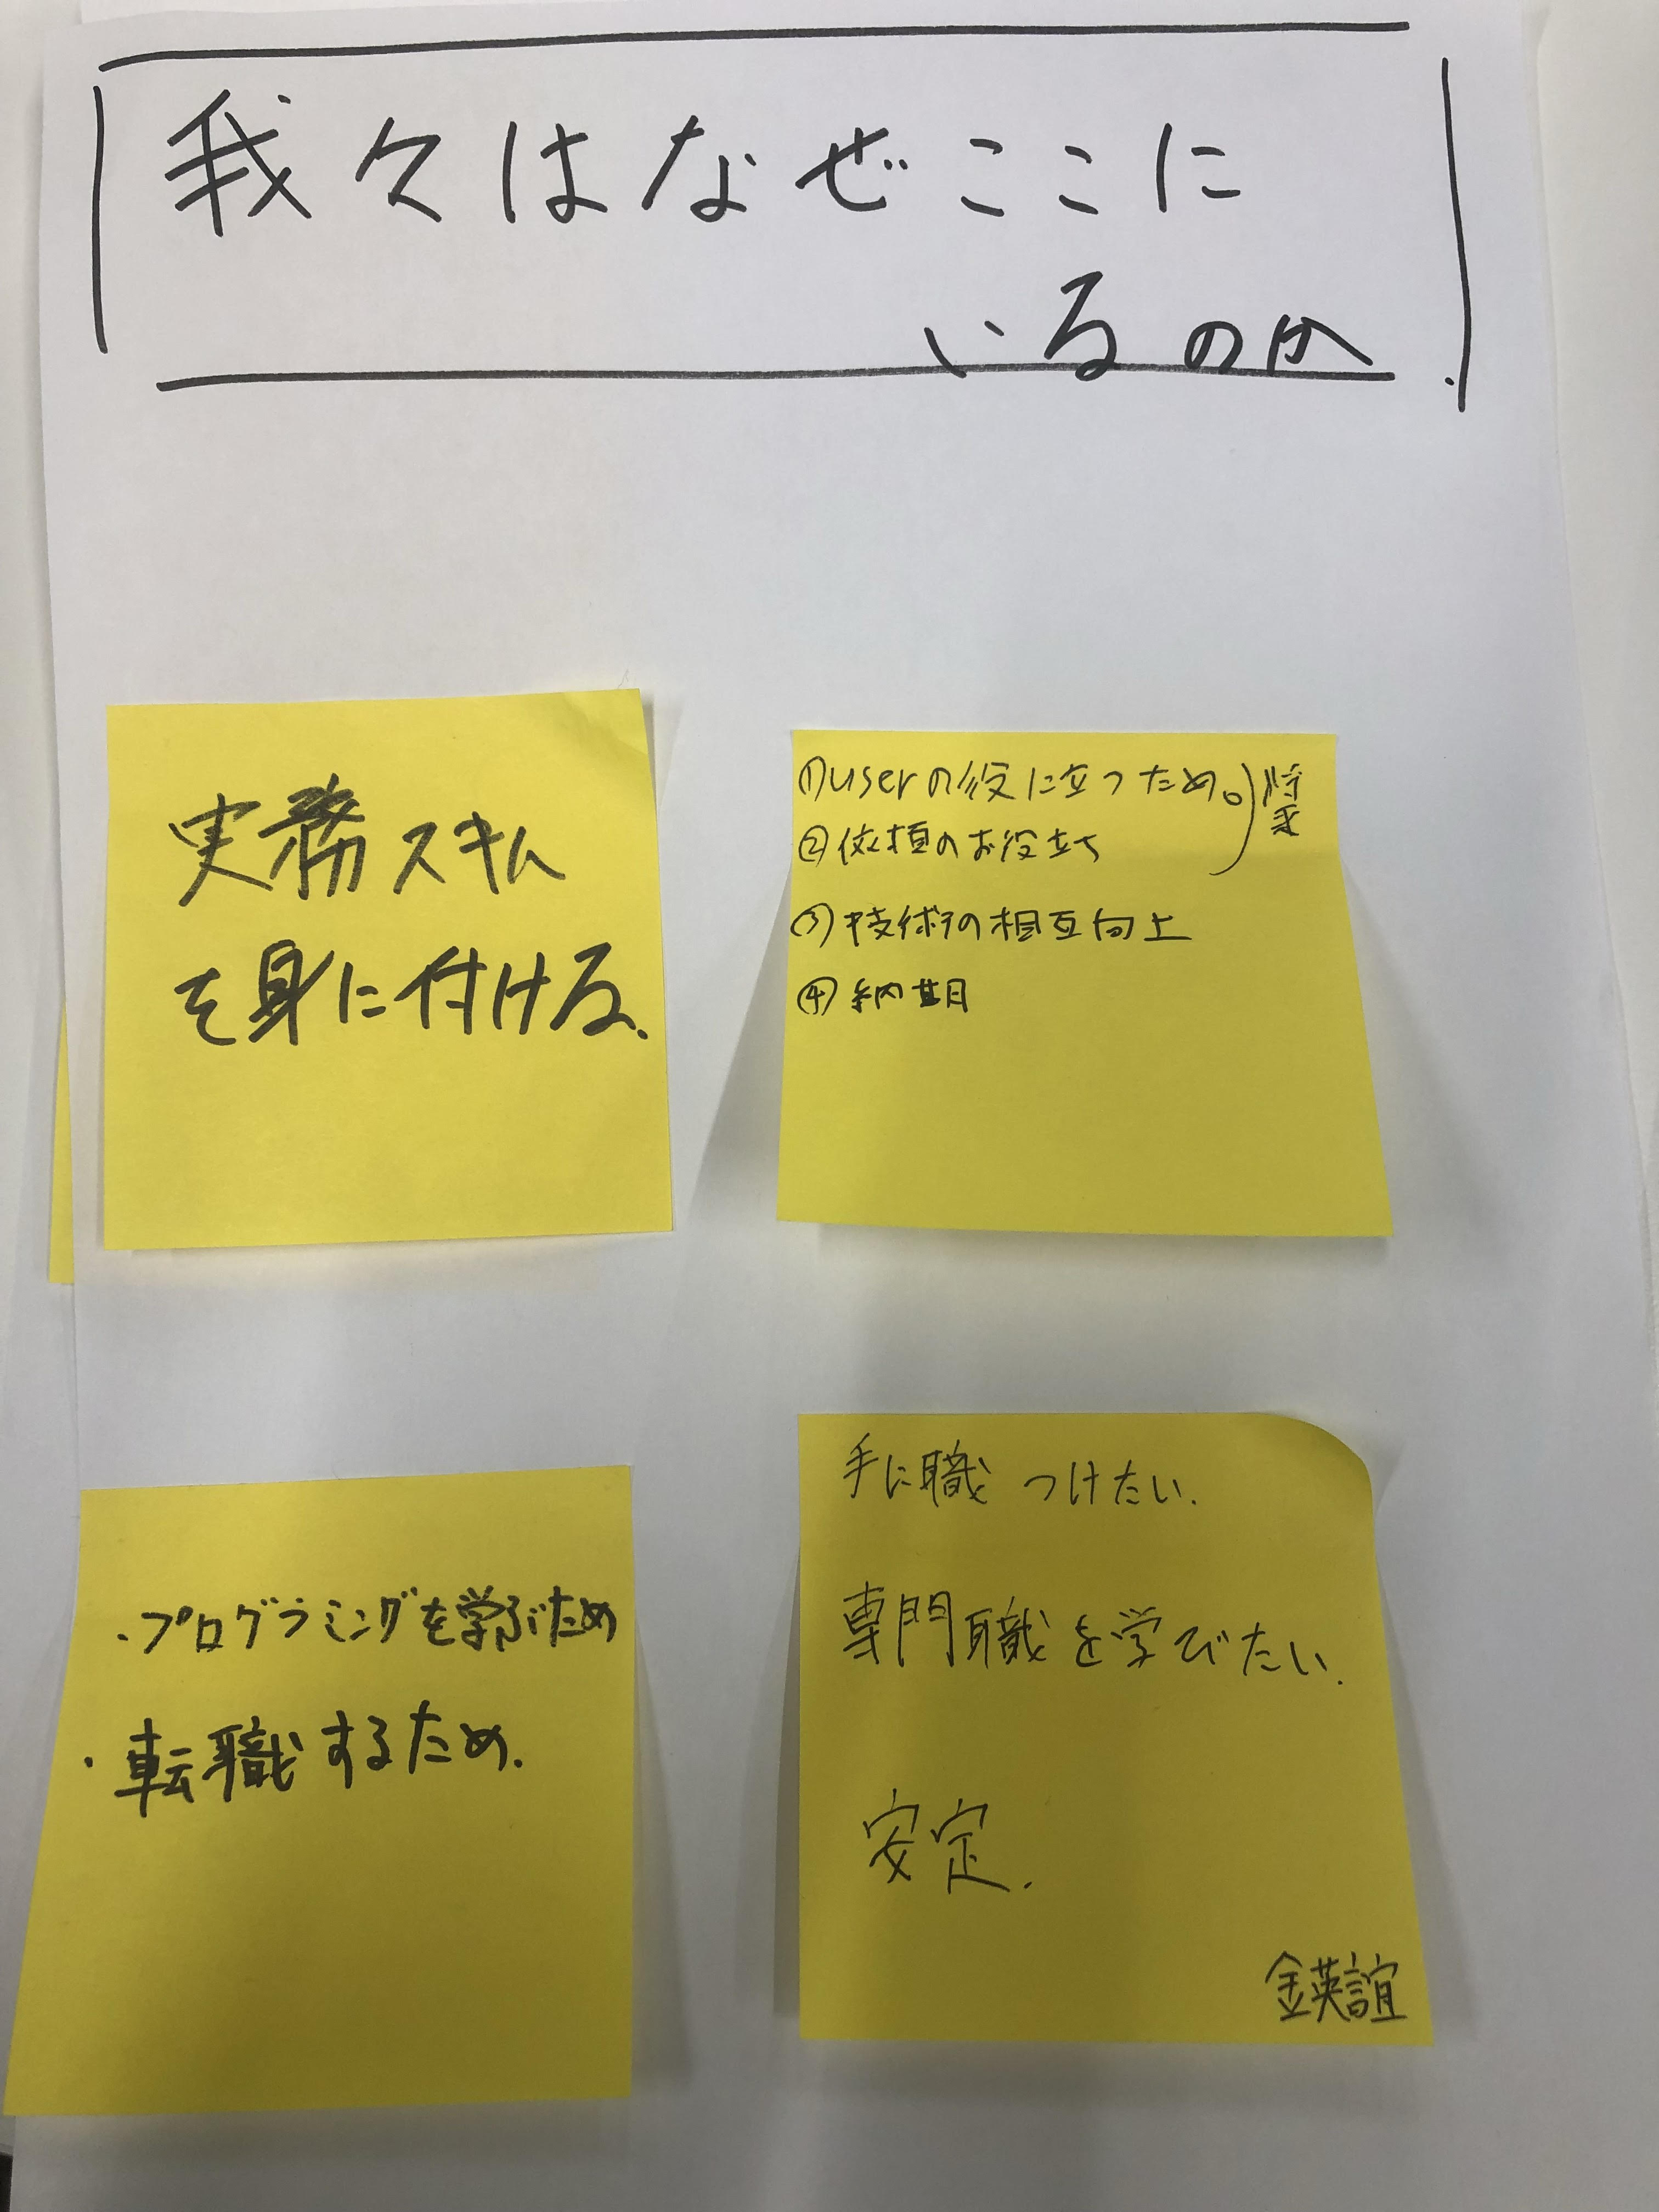 我々はなぜここに
いるのか.
実務スキル
を身に付ける.
①userの役に立つため。
②依頼のお役立ち
将来
③技術の相互向上
④納期
・プログラミングを学ぶため
・転職するため.
手に職 つけたい.
専門職を学びたい.
安定.
金英誼